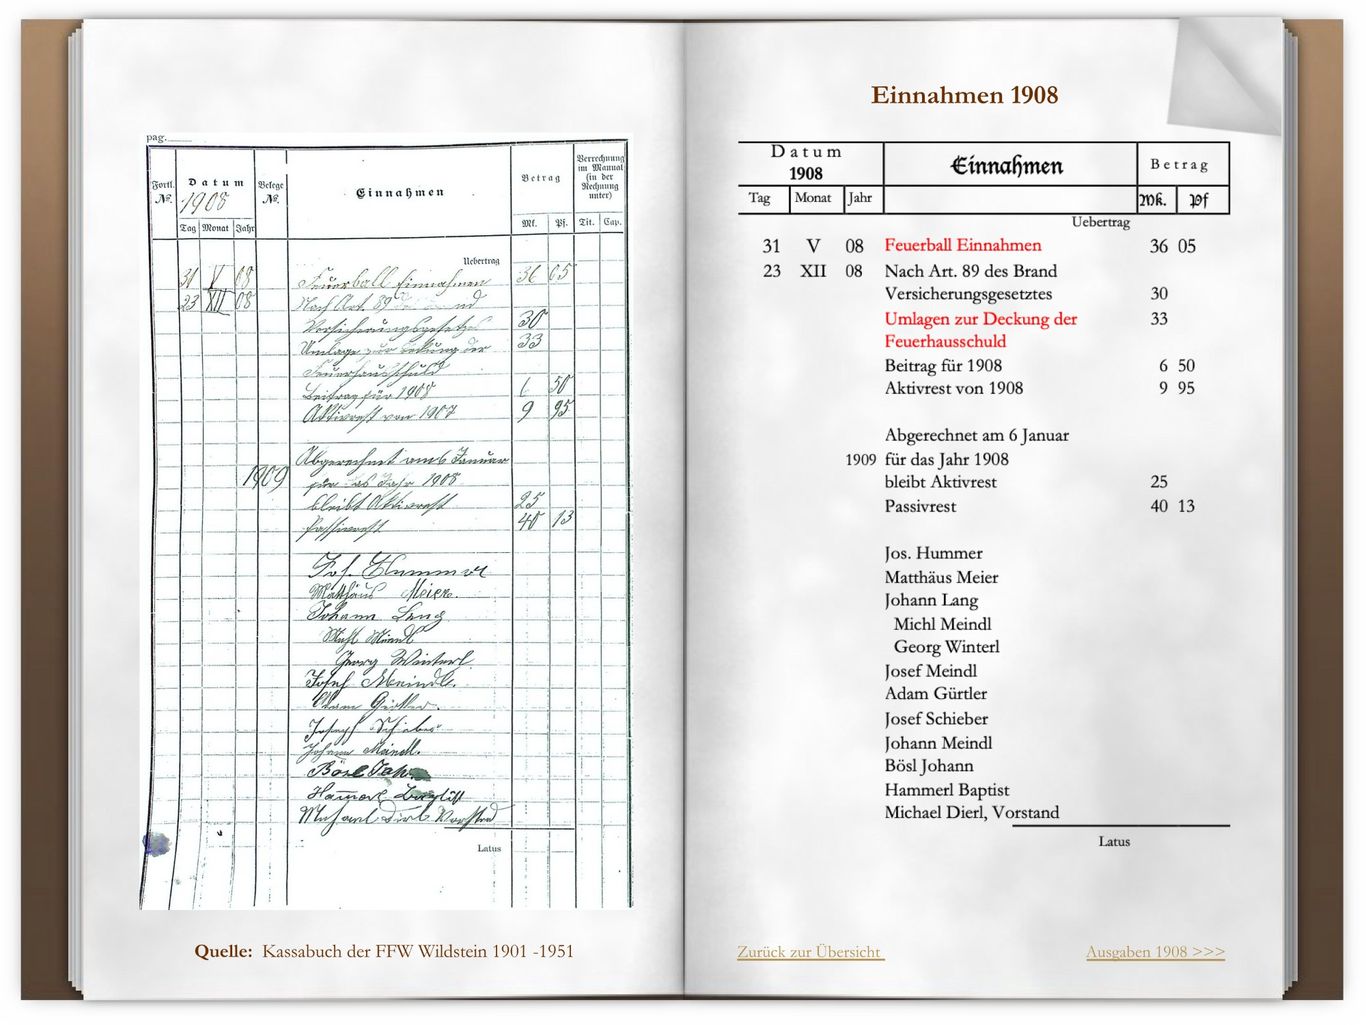 pag.
Fortl. No.
Datum
1908
Tag Monat Jahr
Belege No.
Einnahmen
Betrag
Mk. Pf.
Verrechnung
im Manual
(in der
Rechnung
unter)
Tit. Cap.
Uebertrag
31 V 08 Feuerball Einnahmen 36 05
23 XII 08 Nach Art. 89
Versicherungsgesetzes 30
Umlage zur Deckung der 33
Feuerhausschuld
Beitrag für 1908 6 50
Aktivrest von 1907 9 95
Abgerechnet am 6 Januar
1909 für das Jahr 1908
bleibt Aktivrest 25
Passivrest 40 13
Jos. Hummer
Matthäus Meier
Johann Lang
Michl Meindl
Georg Winterl
Josef Meindl.
Adam Gürtler.
Joseph Schieber
Johann Meindl.
Bösl Joh.
Hammerl Baptist
Michael Dirl Vorstand
Latus
Quelle: Kassabuch der FFW Wildstein 1901 -1951
Einnahmen 1908
Datum
1908
Einnahmen
Betrag
Tag Monat Jahr
Mk. Pf
Uebertrag
31 V 08 Feuerball Einnahmen 36 05
23 XII 08 Nach Art. 89 des Brand
Versicherungsgesetztes 30
Umlagen zur Deckung der 33
Feuerhausschuld
Beitrag für 1908 6 50
Aktivrest von 1908 9 95
Abgerechnet am 6 Januar
1909 für das Jahr 1908
bleibt Aktivrest 25
Passivrest 40 13
Jos. Hummer
Matthäus Meier
Johann Lang
Michl Meindl
Georg Winterl
Josef Meindl
Adam Gürtler
Josef Schieber
Johann Meindl
Bösl Johann
Hammerl Baptist
Michael Dierl, Vorstand
Latus
Zurück zur Übersicht
Ausgaben 1908 >>>